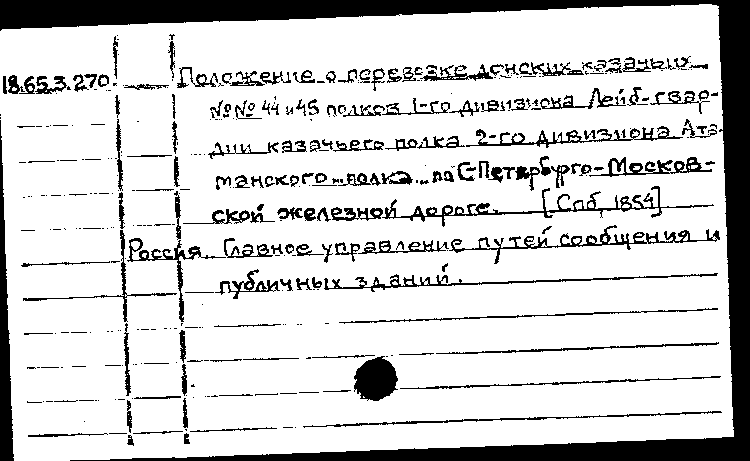 18.65.3.270. Положение о перевозке донских казачьих
№№ 44 и 45 полков 1-го дивизиона Лейб-гвар-
дии казачьего полка 2-го дивизиона Ата-
манского полка по С-Петербурго-Москов-
ской железной дороге. [Спб, 1854]
Россия. Главное управление путей сообщения и
публичных зданий.